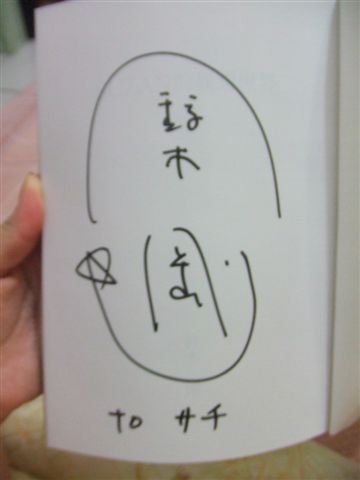 鈴
木
TO サチ